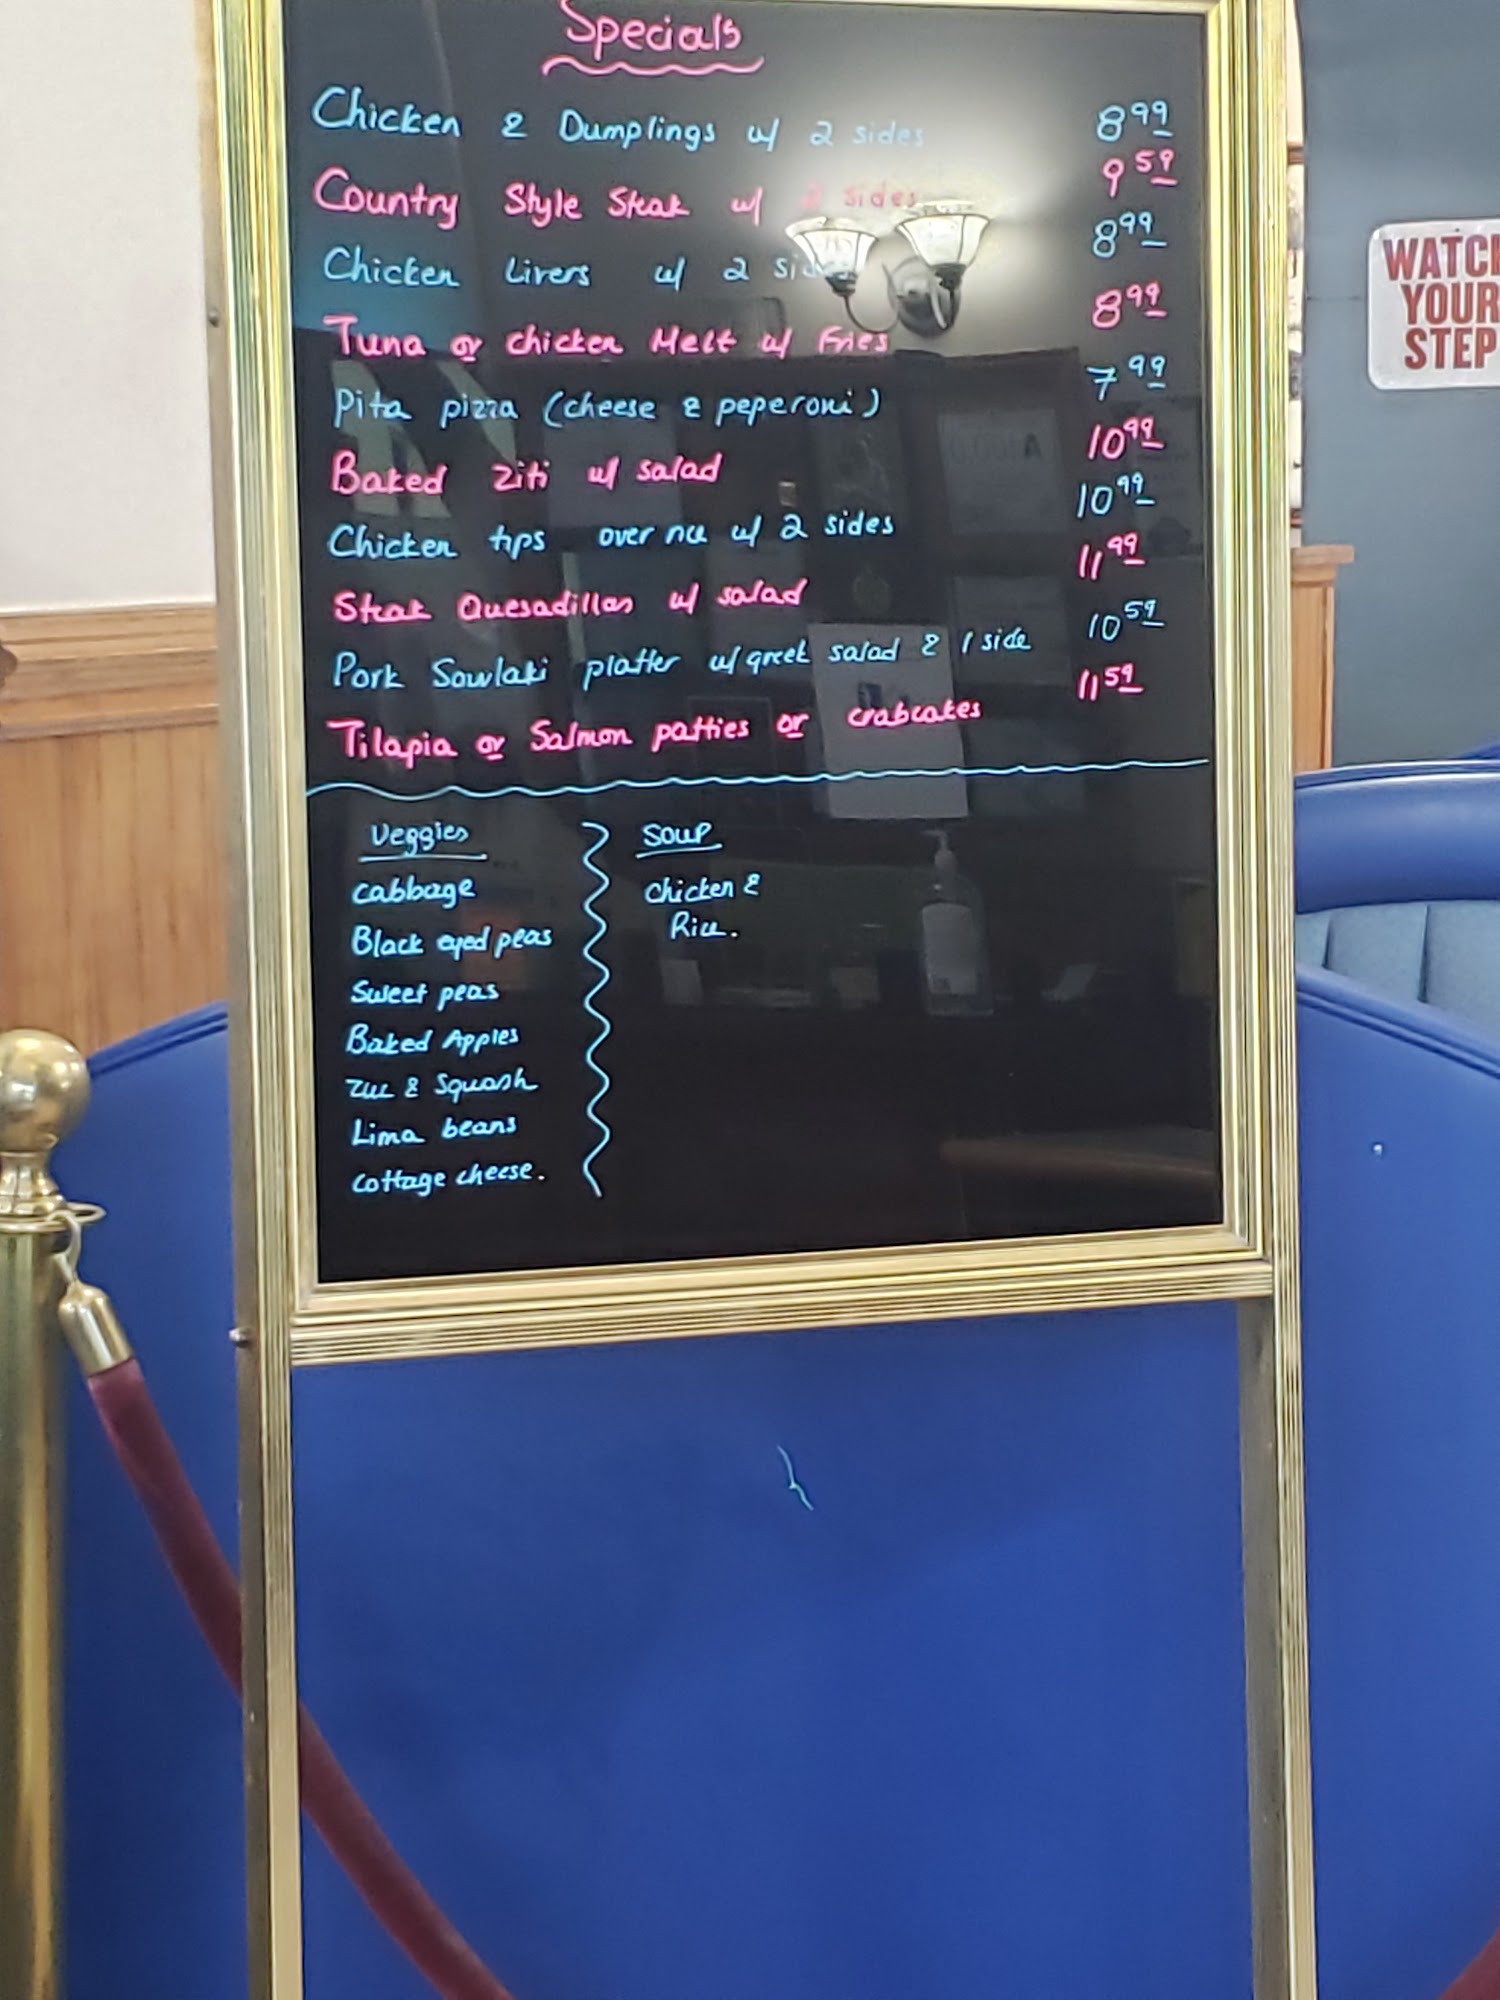 Specials
Chicken & Dumplings w/ 2 sides 8.99
Country Style Steak w/ 2 sides 9.59
Chicken Livers w/ 2 sides 8.99
Tuna or chicken Melt w/ Fries 8.99
Pita pizza (cheese & peperoni) 7.99
Baked Ziti w/ salad 10.99
Chicken tips over rice w/ 2 sides 10.99
Steak Quesadillas w/ salad 11.99
Pork Sowlaki platter w/ greek salad & 1 side 10.59
Tilapia or Salmon patties or crabcakes 11.59
Veggies
cabbage
Black eyed peas
Sweet peas
Baked Apples
Zuc & Squash
Lima beans
cottage cheese.
Soup
chicken &
Rice.
WATCH
YOUR
STEP